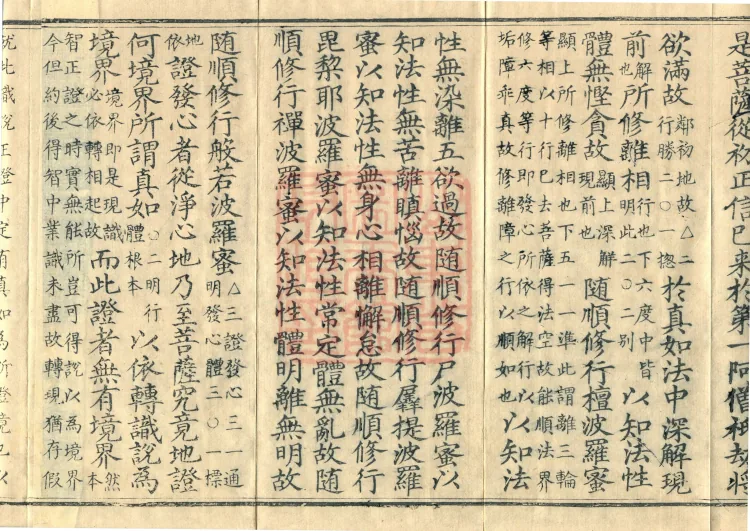 是菩薩從初正信已来於第一阿僧祇劫將
欲滿故鄰初地故△二行勝二○一揔於真如法中深解現
前解也所修離相行也下六度中皆明此二○二别以知法性
體無慳貪故顯上深解現前也随順修行檀波羅蜜
顯上所修離相也下五一一準此謂離三輪
等相以十行巳去菩薩得法空故能順法界
修六度等行即發心所依之解行以
垢障乖真故修離障之行以順如也以知法
性無染離五欲過故随順修行尸波羅蜜以
知法性無苦離瞋惱故随順修行羼提波羅
蜜以知法性無身心相離懈怠故随順修行
毘黎耶波羅蜜以知法性常定體無亂故随
順修行禪波羅蜜以知法性體明離無明故
随順修行般若波羅蜜△三證發心三一通明發心體三○一標
地依證發心者從淨心地乃至菩薩究竟地證
何境界所謂真如○二明行體根本以依轉識說為
境界境界即是現識必依轉相起故而此證者無有境界然本
智正證之時實無能所豈可得說以為境界
今但約後得智中業識未盡故轉現猶存假
就此識說正證中定有真如為所證境也以